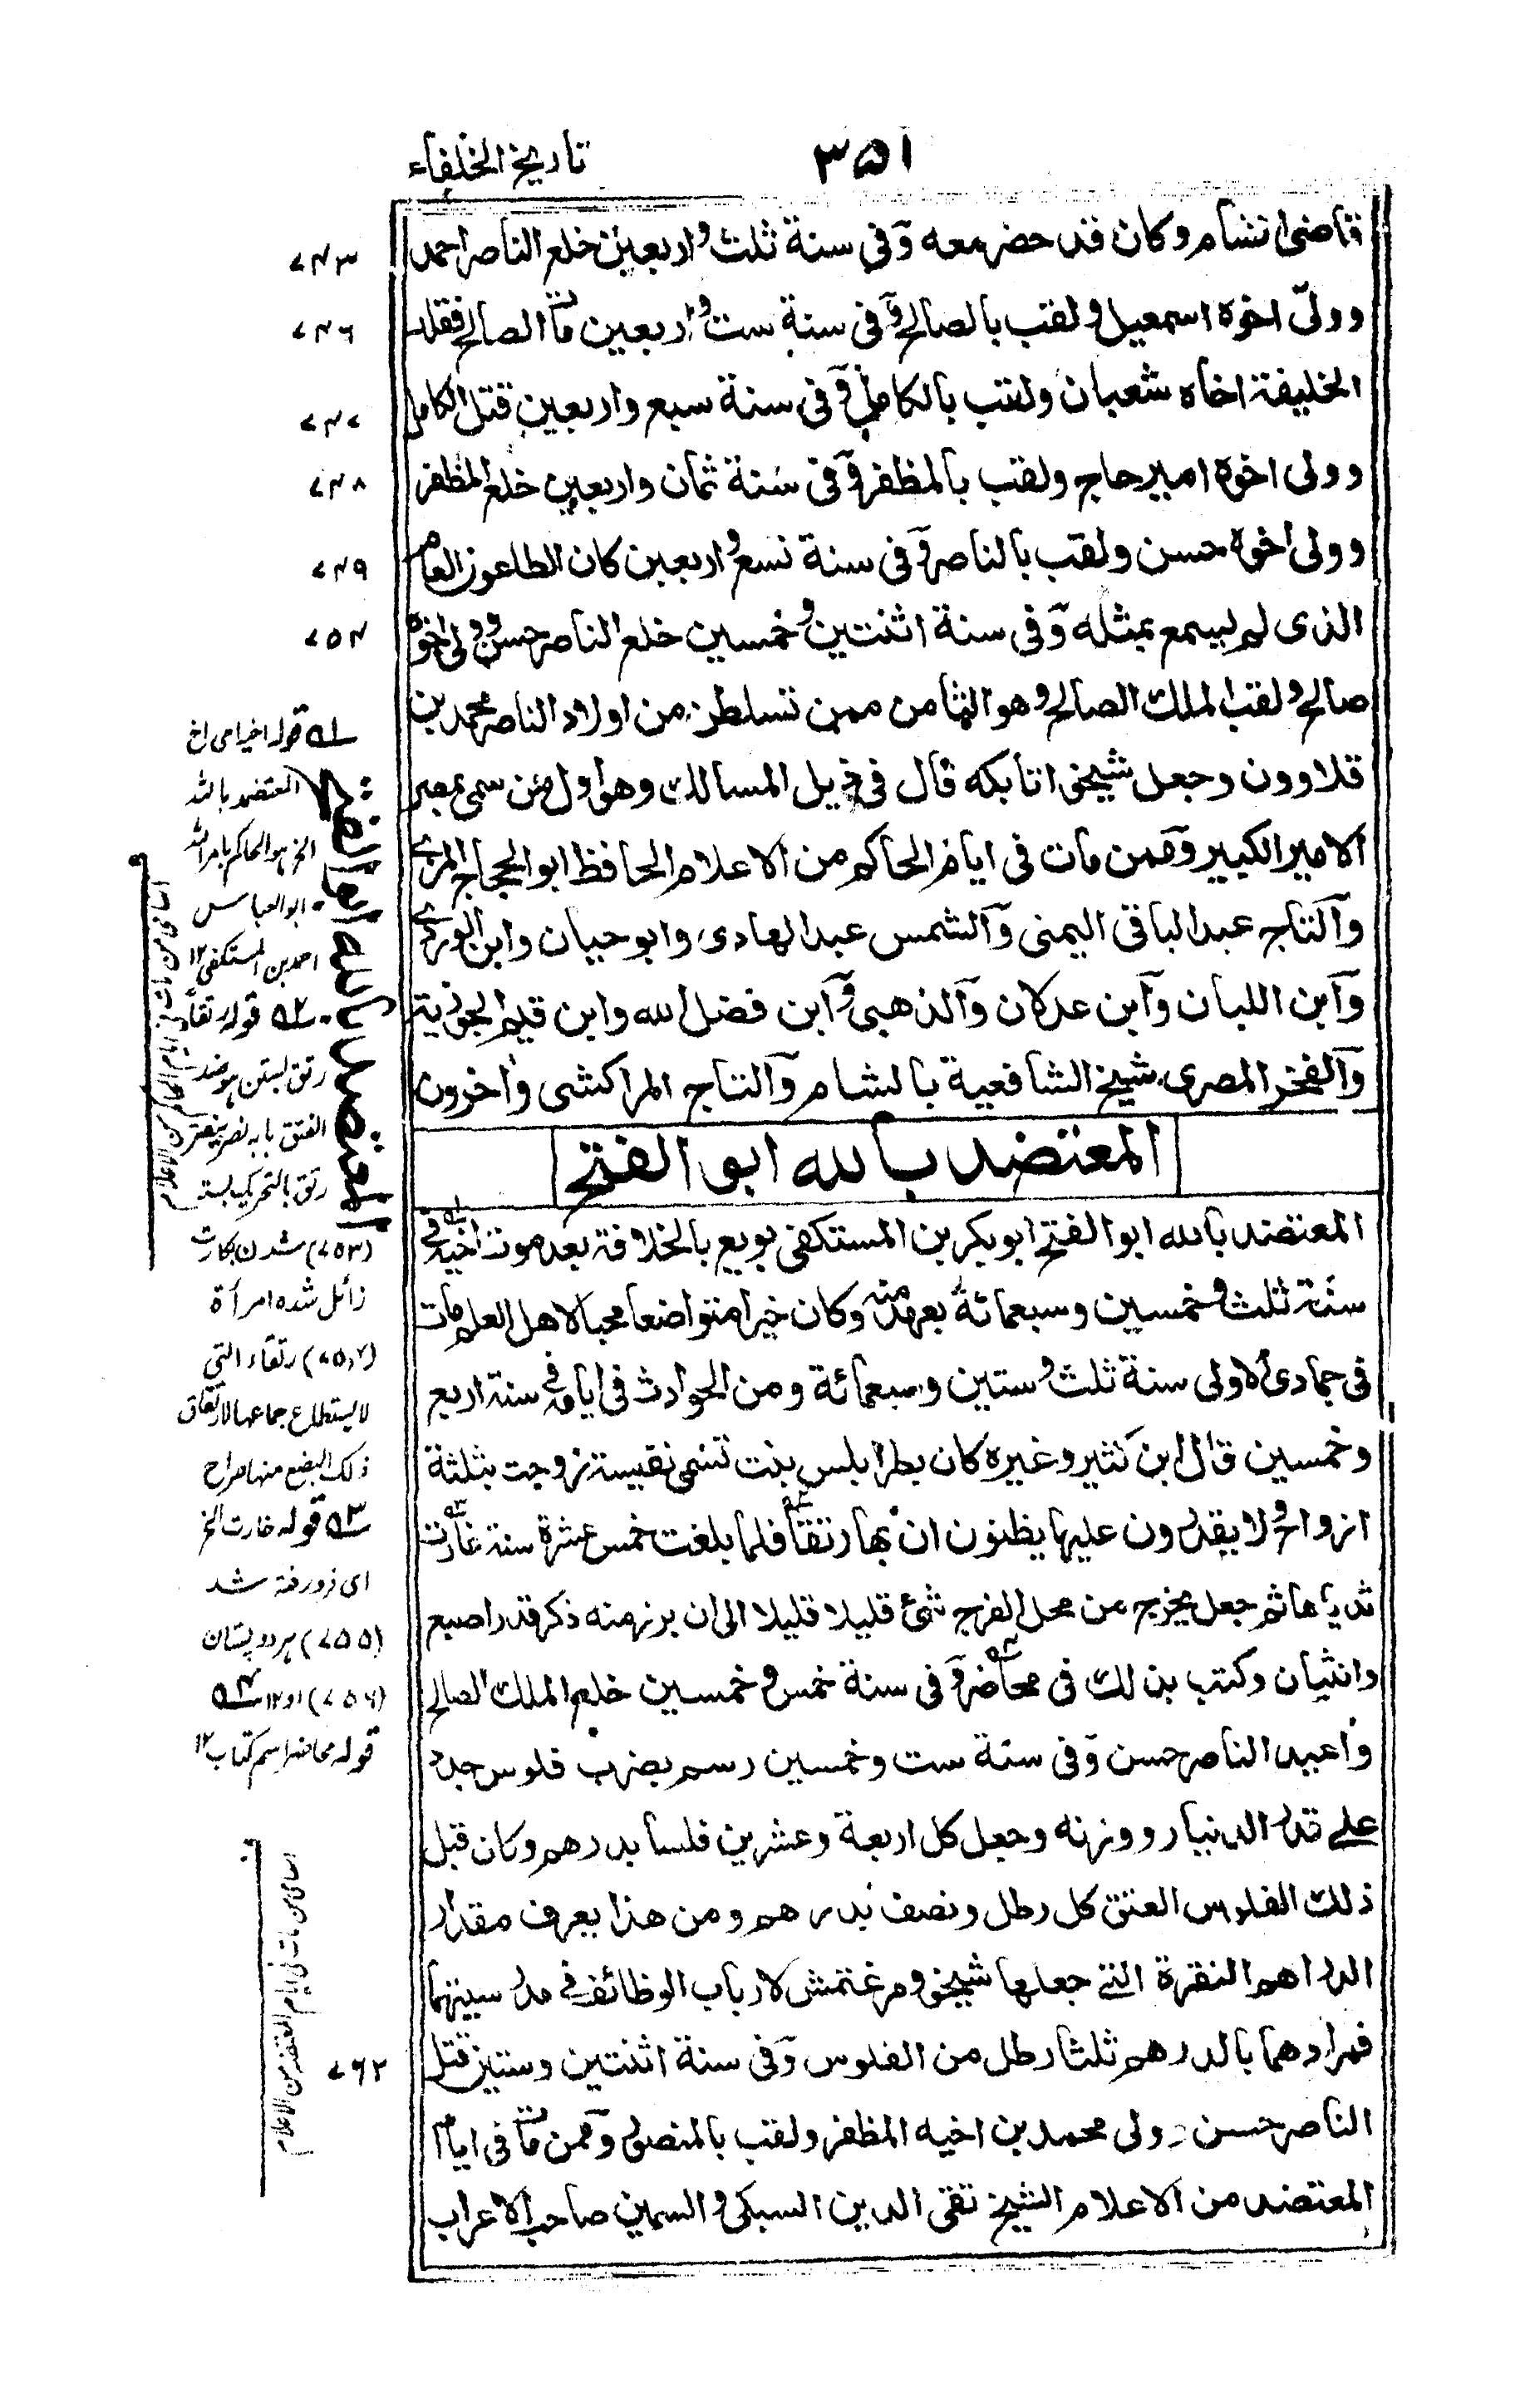 ٣٥١
تاريخ الخلفاء
قاضى الشام وكان قد حضر معه وفى سنة ثلث واربعين خلع الناصر احمد
وولى اخوه اسمعيل ولقب بالصالح وفى سنة ست واربعين مات الصالح فقلد
الخليفة اخاه شعبان ولقب بالكامل وفى سنة سبع واربعين قتل الكامل
وولى اخوه امير حاج ولقب بالمظفر وفى سنة ثمان واربعين خلع المظفر
وولى اخوه حسن ولقب بالناصر وفى سنة تسع واربعين كان الطاعون العام
الذى لم يسمع بمثله وفى سنة اثنتين وخمسين خلع الناصر حسن وولى اخوه
صالح ولقب الملك الصالح وهو الثامن ممن تسلطن من اولاد الناصر محمد بن
قلاوون وجعل شيخو اتابكه قال فى ذيل المسالك وهو اول من سمى بمصر
الامير الكبير وممن مات فى ايام الحاكم من الاعلام الحافظ ابو الحجاج المزى
والتاج عبد الباقى اليمنى والشمس عبد الهادى وابو حيان وابن الوردى
وابن اللبان وابن عدلان والذهبى وابن فضل الله وابن قيم الجوزية
والفخر المصرى شيخ الشافعية بالشام والتاج المراكشى واخرون
المعتضد بالله ابو الفتح
المعتضد بالله ابو الفتح ابوبكر بن المستكفى بويع بالخلافة بعد موت اخيه فى
سنة ثلث وخمسين وسبعمائة بعهد منه وكان خيرا متواضعا محبا لاهل العلم مات
فى جمادى الاولى سنة ثلث وستين وسبعمائة ومن الحوادث فى ايامه فى سنة اربع
وخمسين قال ابن كثير وغيره كان بطرابلس بنت تسمى نفيسة زوجت بثلثة
ازواج ولا يقدرون عليها يظنون ان بها رتقا فلما بلغت خمس عشرة سنة غارت
ثدياها ثم جعل يخرج من محل الفرج شئ قليلا قليلا الى ان برز منه ذكر قدر اصبع
وانثيان وكتب بذلك فى محاضر وفى سنة خمس وخمسين خلع الملك الصالح
واعيد الناصر حسن وفى سنة ست وخمسين رسم بضرب فلوس جدد
على قدر الدينار ووزنه وجعل كل اربعة وعشرين فلسا بدرهم وكان قبل
ذلك الفلوس العتق كل رطل ونصف بدرهم ومن هذا يعرف مقدار
الدراهم النقرة التى جعلها شيخو وصرغتمش لارباب الوظائف فى مدرستيهما
فمرادهما بالدرهم ثلثا رطل من الفلوس وفى سنة اثنتين وستين قتل
الناصر حسن وولى محمد بن اخيه المظفر ولقب بالمنصور وممن مات فى ايام
المعتضد من الاعلام الشيخ تقى الدين السبكى والسمين صاحب الاعراب
٧٤٣
٧٤٦
٧٤٧
٧٤٨
٧٤٩
٧٥٢
لـه قوله اخيه اى اخ
المعتضد بالله
الخ هو الحاكم بامر الله
ابو العباس
احمد بن المستكفى ١٢
٢ـه قوله رتقا
رتق بستن هو ضد
الفتق بابه نصر ينصر
رتق بالتحريك بسته
(٧٥٣) شدن بكارت
زائل شده امرأة
(٧٥٤) رتقاء التى
لا يستطاع جماعها لارتقاق
ذلك البضع منها صراح
٣ـه قوله غارت الخ
اى فرو رفته شد
(٧٥٥) هر دو پستان
(٧٥٦) او ١٢ ٤ـه
قوله محاضر اسم كتاب ١٢
٧٦٢
اسامى من مات فى ايام الحاكم من الاعلام
اسامى من مات فى ايام المعتضد من الاعلام